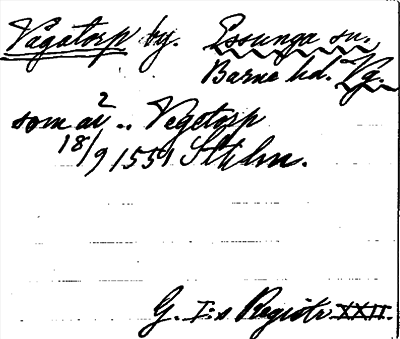 Vägatorp by. Essunga sn.
Barne hd. Vg.
som är .. Vegetorp
18/9 1551 Sthlm.
G. I:s Registr XXII.